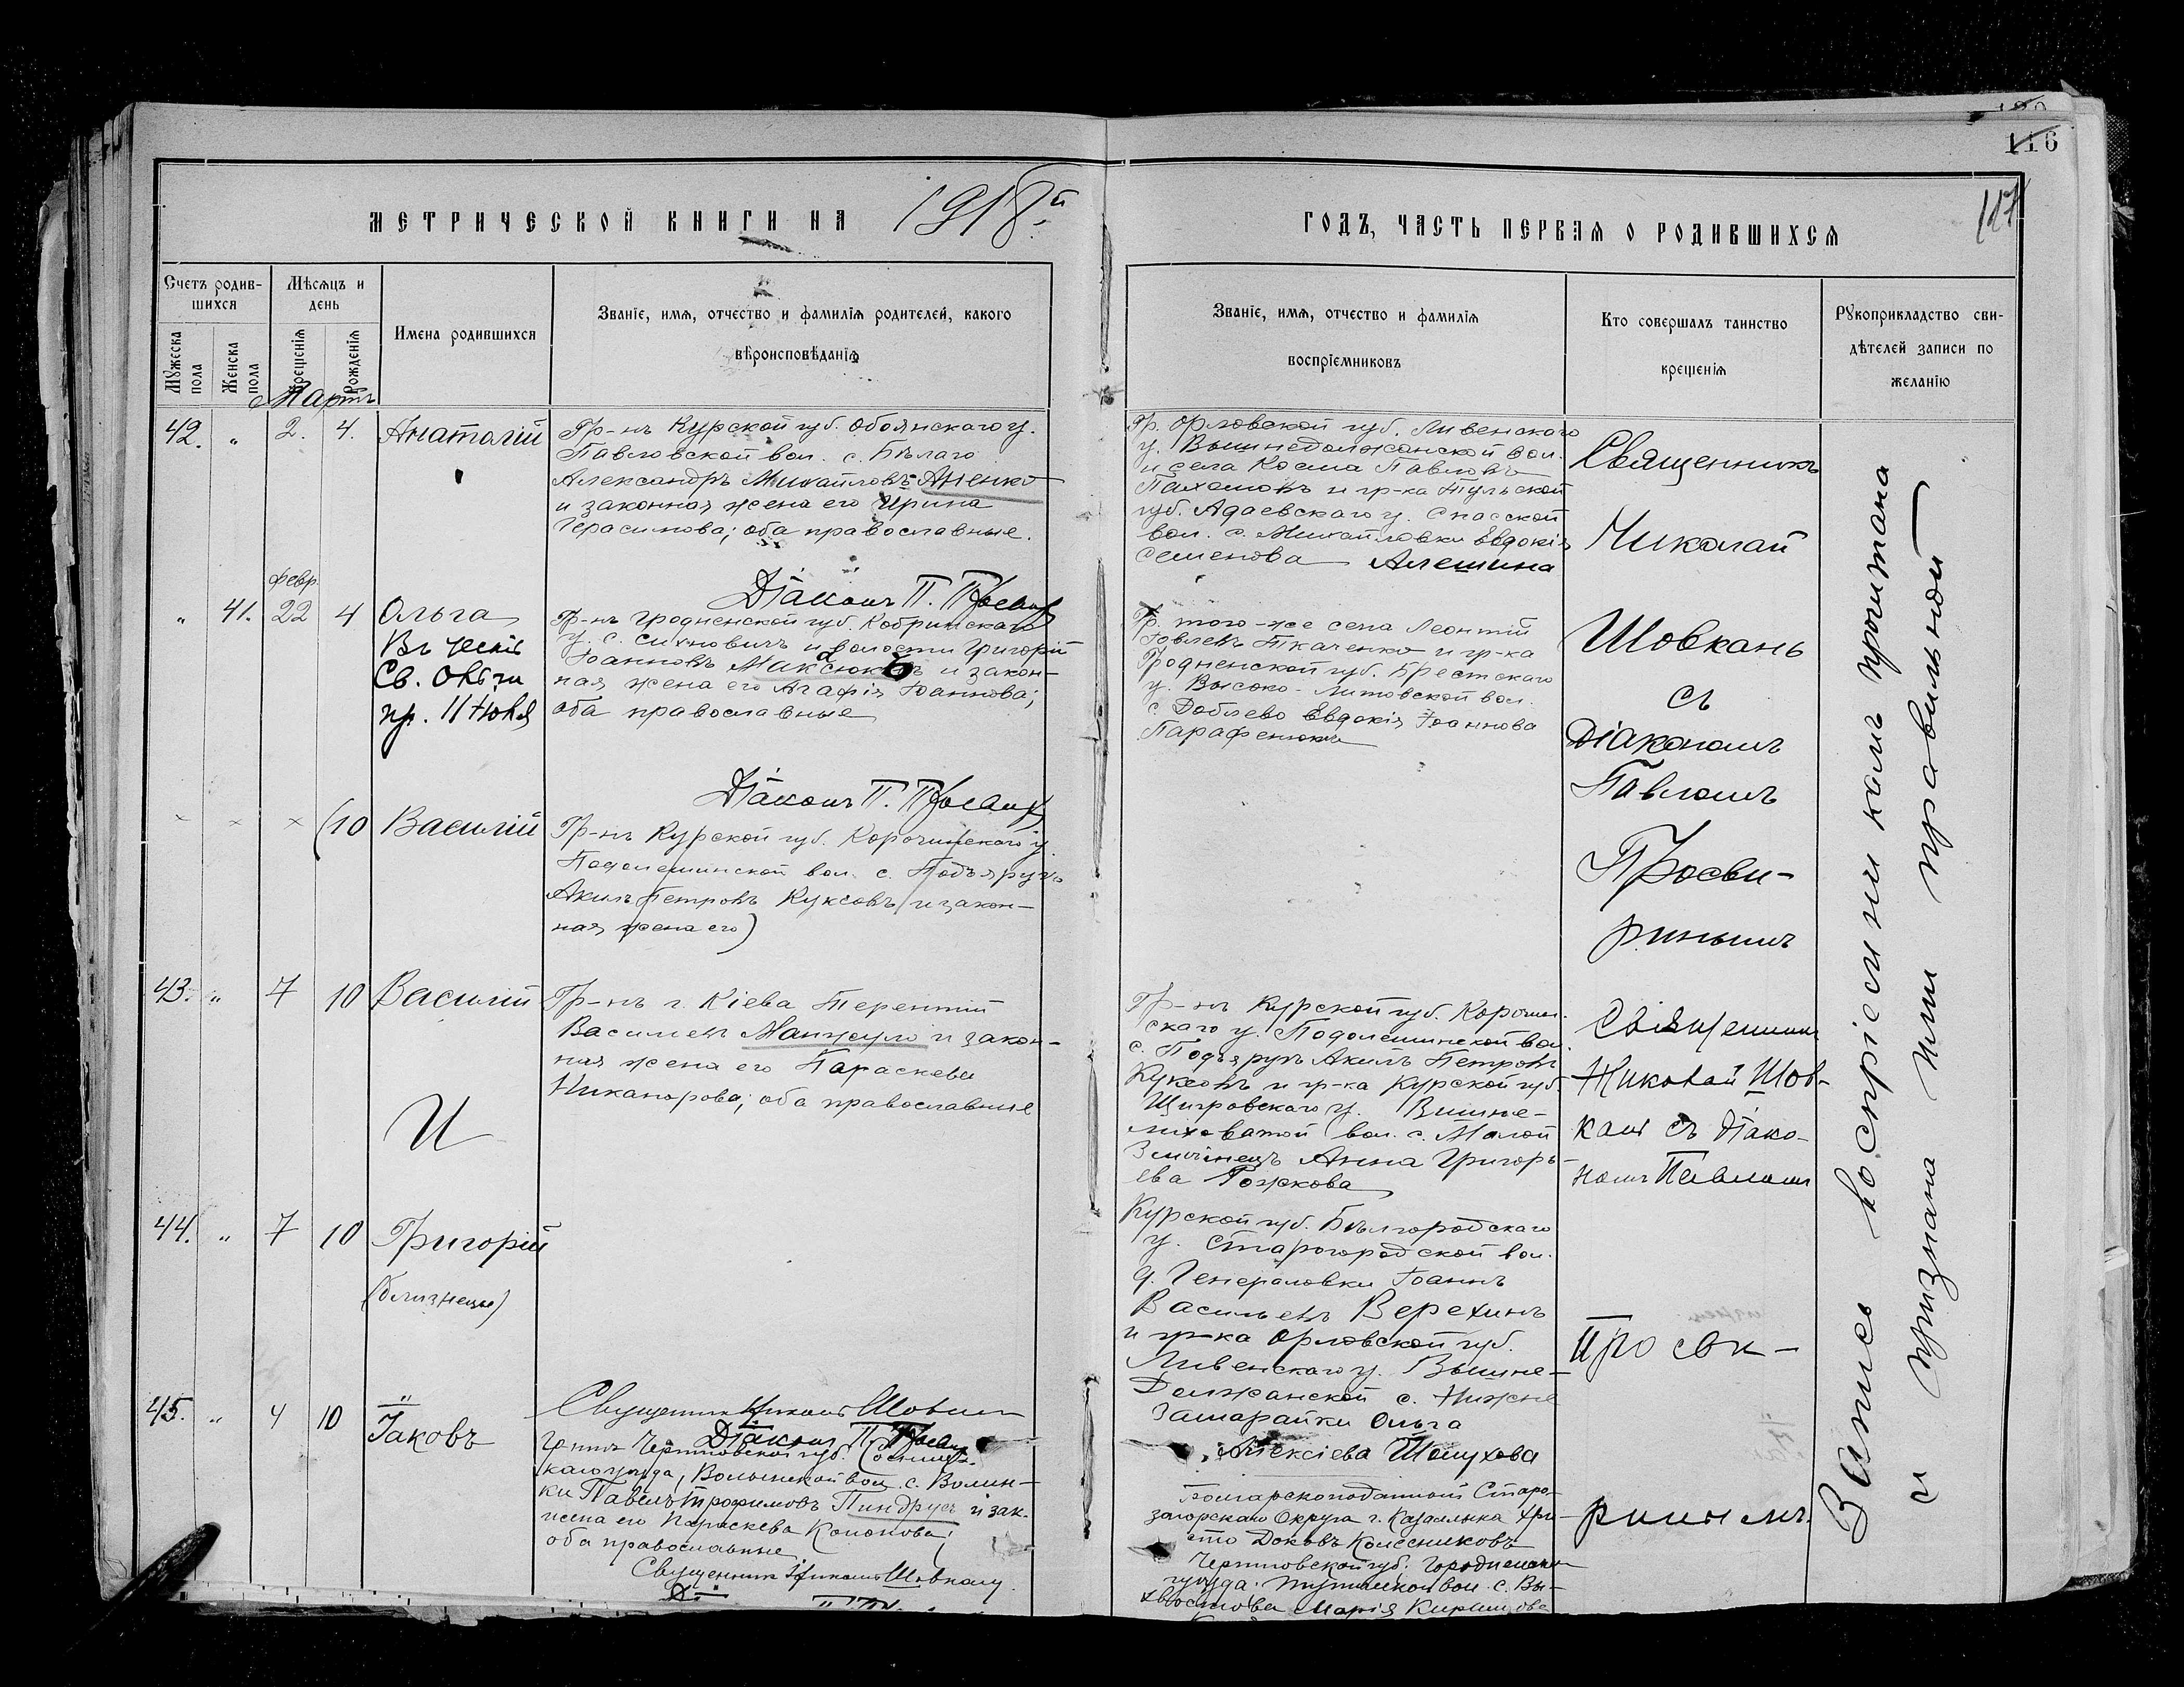 116
117
МЕТРИЧЕСКОЙ КНИГИ НА 1918й
ГОДЪ, ЧАСТЬ ПЕРВАЯ О РОДИВШИХСЯ
Счетъ родив-
шихся
Мѣсяцъ и
день
Мужеска
пола
Женска
пола
Крещенія
Рожденія
Имена родившихся
Званіе, имя, отчество и фамилія родителей, какого
вѣроисповѣданія
Званіе, имя, отчество и фамилія
воспріемниковъ
Кто совершалъ таинство
крещенія
Рукоприкладство сви-
дѣтелей записи по
желанію
Мартъ
42. „ 2. 4. Анатолій
Гр-нъ Курской губ. Обоянскаго у.
Павловской вол. с. Бѣлаго
Александръ Михайловъ Аненко
и законная жена его Ирина
Герасимова; оба православные.
Діаконъ П.
Гр. Орловской губ. Ливенскаго
у. Вышнедолжанской вол.
и села Косма Павловъ
Пахомовъ и гр-ка Тульской
губ. Спасской
вол. с. Михайловки Евдокія
Семенова Алешина
Священникъ
Николай
Шовкань
съ
Діакономъ
Павломъ
Просви-
ринымъ
февр.
„ 41. 22 4 Ольга
Въ честь
Св. Ольги
пр. 11 Іюля
Гр-нъ Гродненской губ. Кобринскаго
у. с. и волости Григорій
Іоанновъ и закон-
ная жена его Агафія Іоаннова;
оба православные
Діаконъ П.
Гр. того-же села Леонтій
Ткаченко и гр-ка
Гродненской губ. Брестскаго
у. Высоко-Литовской вол.
с. Евдокія Іоаннова
Парафенюкъ
× × × (10 Василій
Гр-нъ Курской губ. Корочинскаго у.
вол. с. Подъяругъ
Акилъ Петровъ Куксовъ и закон-
ная жена его)
43. „ 7 10 Василій
Гр-нъ г. Кіева Терентій
Васильевъ и закон-
ная жена его Параскева
Никанорова; оба православные
И
Гр-нъ Курской губ. Корочин-
скаго у. вол.
с. Подъяругъ Акилъ Петровъ
Куксовъ и гр-ка Курской губ.
Щигровскаго у. Вышне-
вол. с. Малой
Анна Григорь-
ева Рожкова
Священникъ
Николай Шов-
кань съ Діако-
номъ Павломъ
44. „ 7 10 Григорій
(близнецы)
Курской губ. Бѣлгородскаго
у. Старогородской вол.
д. Генераловки Іоаннъ
Васильевъ Верехинъ
и гр-ка Орловской губ.
Ливенскаго у. Вышне-
Должанской с. Нижне
Замарайки Ольга
Алексіева Шолухова
Просви-
ринымъ.
Священникъ Николай Шовкань
Діаконъ П.
45. „ 4 10 Іаковъ
Черниговской губ.
уѣзда, Волынской вол. с. Волын-
ки Павелъ Трофимовъ Пиндрусъ и зак.
жена его Параскева
оба православные
Священникъ Николай Шовкань.
Болгарскоподданный Старо-
загорскаго Округа г. Казанлыка Хри-
сто Колесниковъ
Черниговской губ. Городнянскаго
уѣзда. вол. с. Вы-
хвостова Марія
Запись воспріемникамъ прочитана
и признана ими правильной